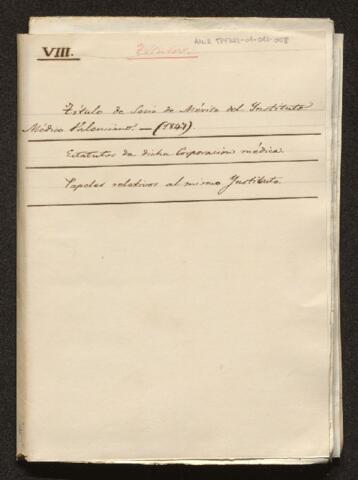 VIII.
Títulos.
Título de Socio de Mérito del Instituto
Médico Valenciano. — (1847).
Estatutos de dicha Corporacion médica.
Papeles relativos al mismo Instituto.